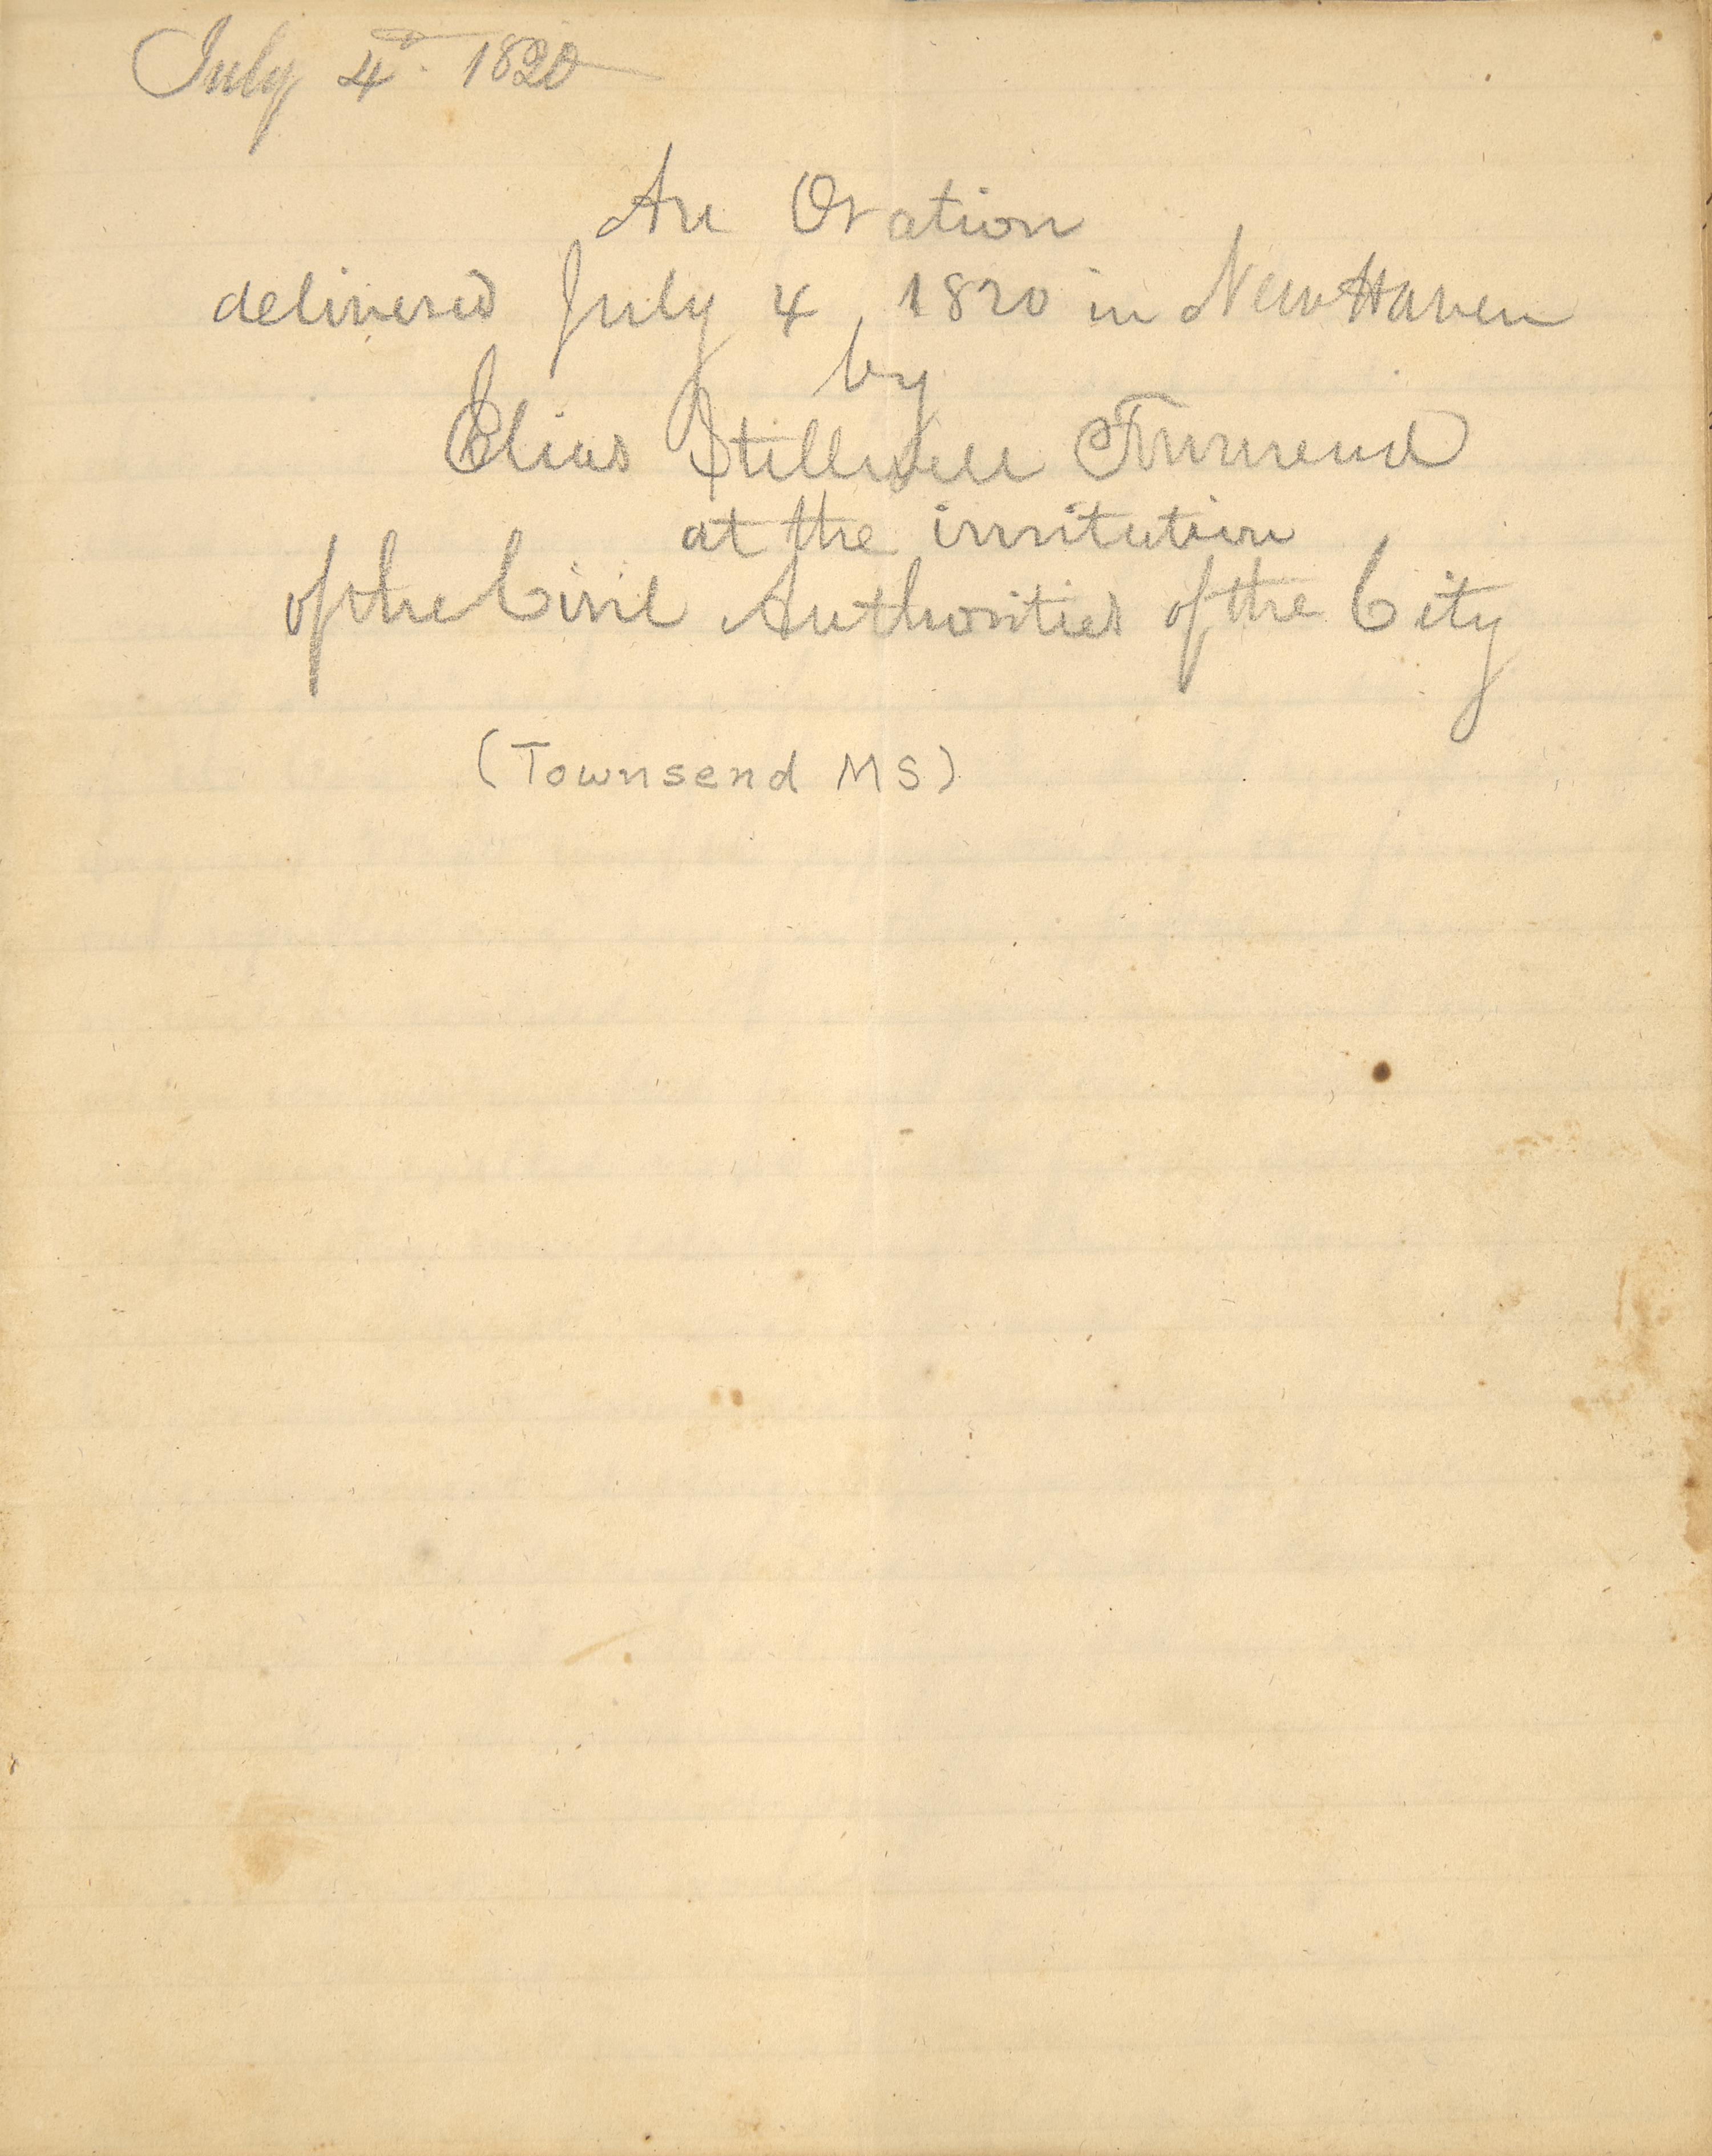 July 4th. 1820
An Oration
delivered July 4, 1820 in New Haven
by
Elias Stillwell Townsend
at the invitation
of the Civil Authorities of the City
(Townsend MS)